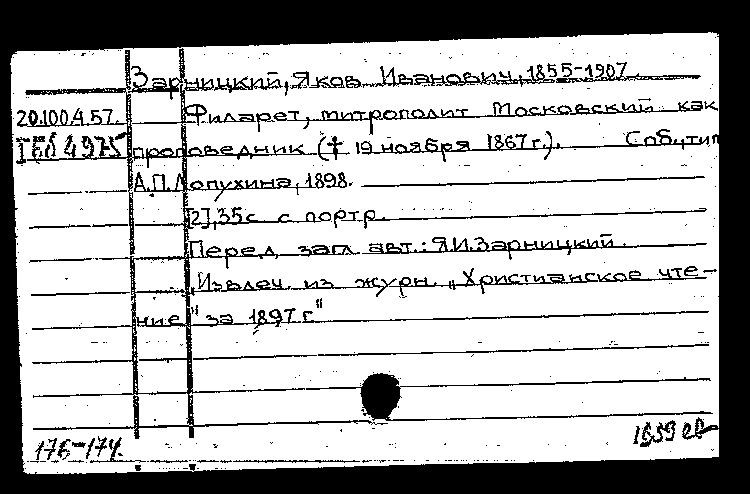 Зарницкий, Яков Иванович, 1855-1907.
20.100.4.57. Филарет, митрополит Московский как
проповедник († 19 ноября 1867 г.). Спб., тип
А.П. Лопухина, 1898.
[2], 35 с с портр.
Перед загл авт.: Я.И. Зарницкий.
"Извлеч. из журн. „Христианское чте-
ние" за 1897 г."
176-174.